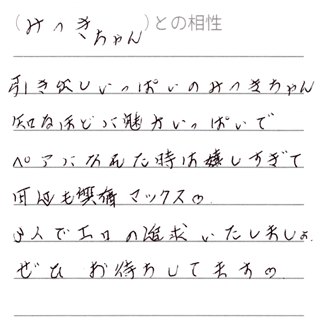 (みつきちゃん)との相性
引き出しいっぱいのみつきちゃん
知るほどに魅力いっぱいで
ペアになれた時は嬉しすぎて
何回も興奮マックス♡
3人でエロの追求いたしましょ♡
ぜひ お待ちしてます♡